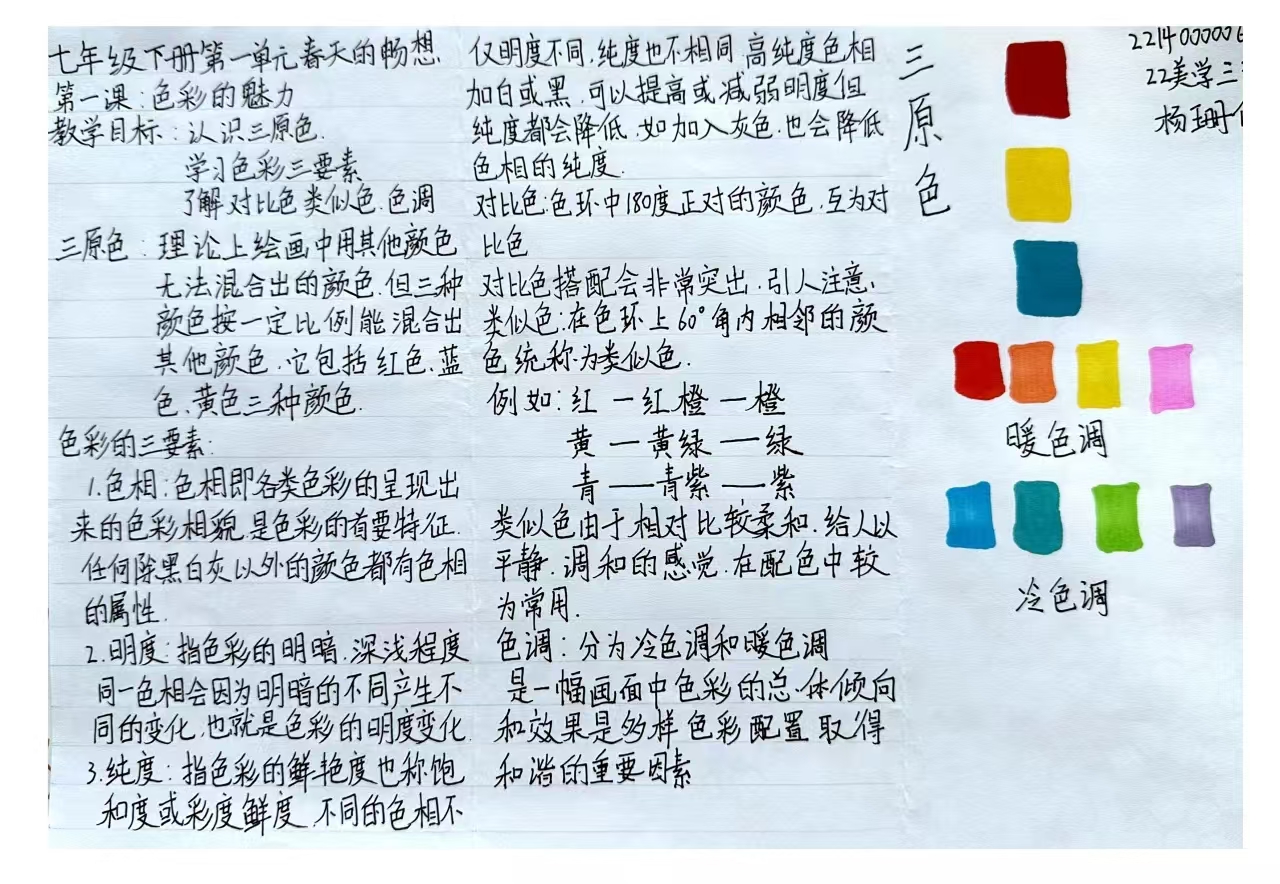 七年级下册第一单元春天的畅想
第一课:色彩的魅力
教学目标:认识三原色.
学习色彩三要素
了解对比色类似色.色调
三原色:理论上绘画中用其他颜色
无法混合出的颜色.但三种
颜色按一定比例能混合出
其他颜色.它包括红色、蓝
色、黄色三种颜色.
色彩的三要素:
1.色相:色相即各类色彩的呈现出
来的色彩相貌.是色彩的首要特征.
任何除黑白灰以外的颜色都有色相
的属性.
2.明度:指色彩的明暗.深浅程度
同一色相会因为明暗的不同产生不
同的变化.也就是色彩的明度变化.
3.纯度:指色彩的鲜艳度也称饱
和度或彩度鲜度.不同的色相不
仅明度不同.纯度也不相同.高纯度色相
加白或黑.可以提高或减弱明度但
纯度都会降低.如加入灰色.也会降低
色相的纯度.
对比色:色环中180度正对的颜色.互为对
比色
对比色搭配会非常突出.引人注意.
类似色:在色环上60°角内相邻的颜
色统称为类似色.
例如:红—红橙—橙
黄—黄绿—绿
青—青紫—紫
类似色由于相对比较柔和.给人以
平静.调和的感觉.在配色中较
为常用.
色调:分为冷色调和暖色调
是一幅画面中色彩的总体倾向
和效果是多样色彩配置取得
和谐的重要因素
三原色
暖色调
冷色调
221400000
22美学三
杨珊